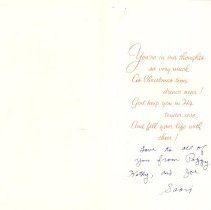 You're in our thoughts
so very much
As Christmas time
draws near!
God keep you in His
tender care,
And fill your life with
cheer!
Love to all of
you from Peggy
Kathy, and Joe